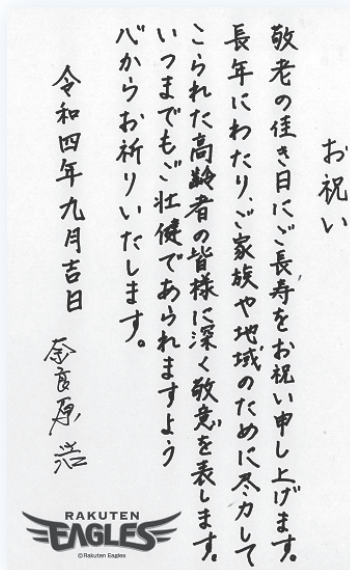 お祝い
敬老の佳き日にご長寿をお祝い申し上げます。
長年にわたり、ご家族や地域のために尽力して
こられた高齢者の皆様に深く敬意を表します。
いつまでもご壮健であられますよう
心からお祈りいたします。
令和四年九月吉日
奈良原浩
RAKUTEN
EAGLES
©Rakuten Eagles